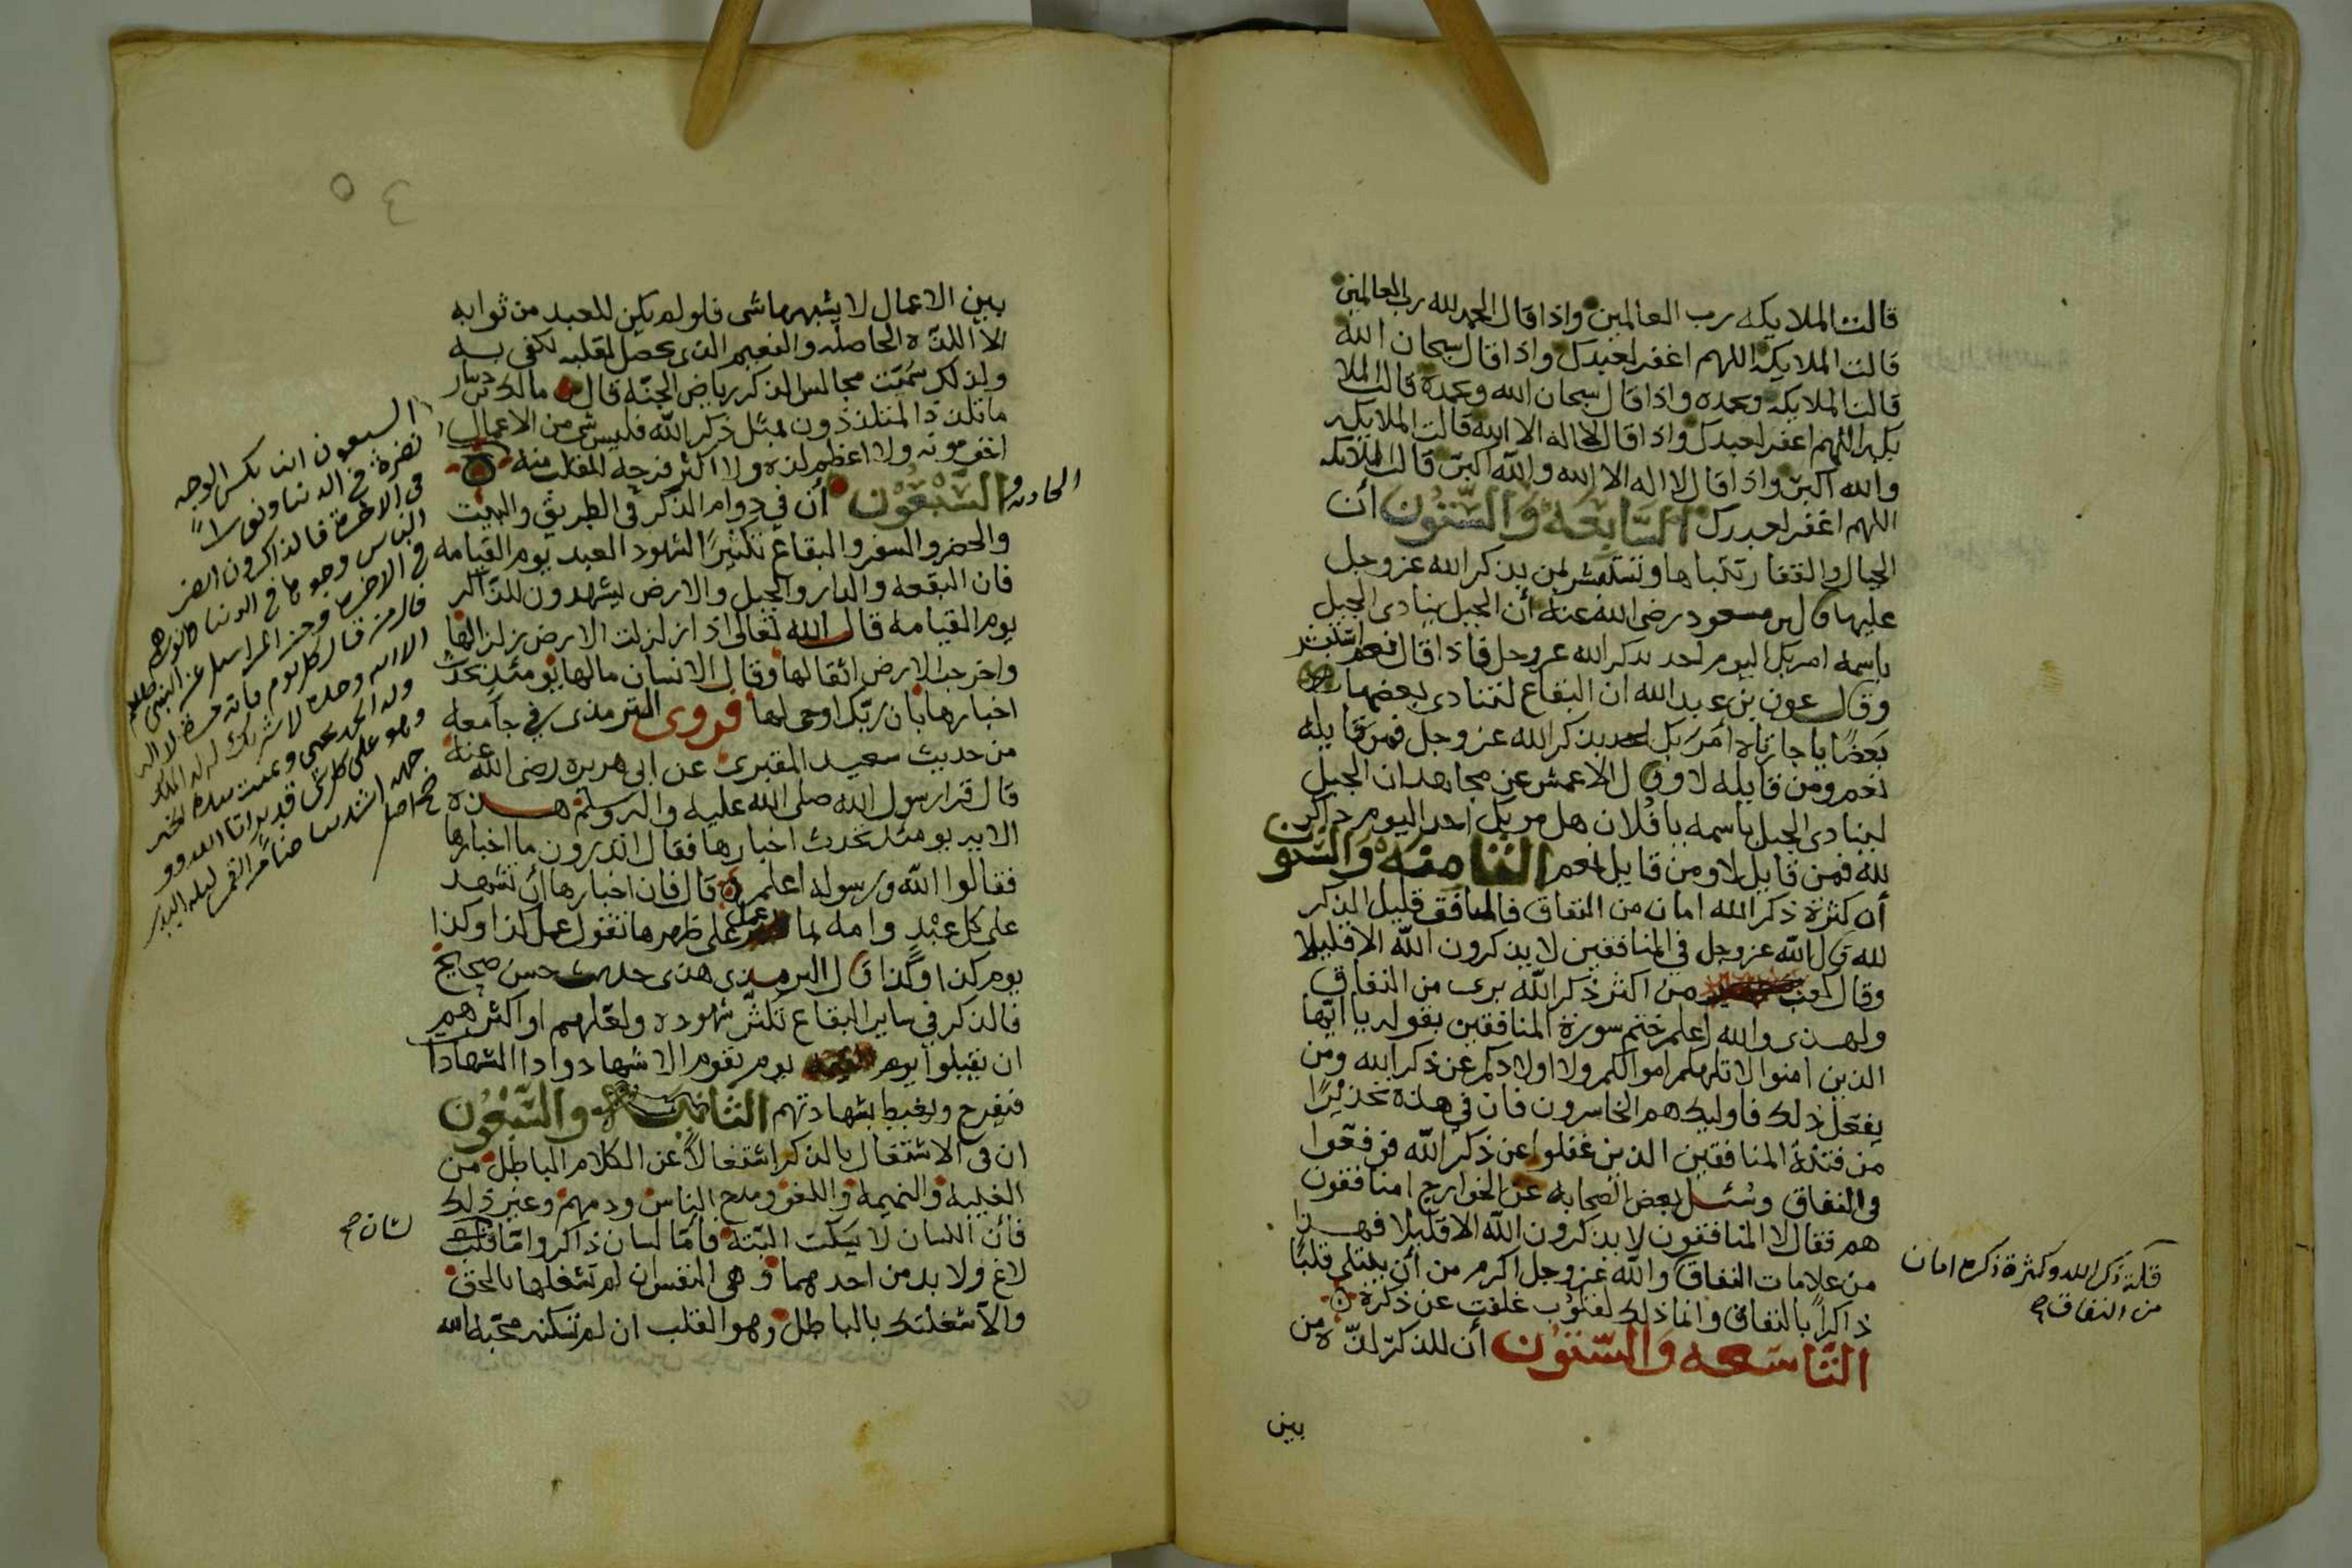 قالت الملايكه رب العالمين واذا قال الحمد لله رب العالمين
قالت الملايكه اللهم اغفر لعبدك واذا قال سبحان الله
قالت الملايكه وبحمده واذا قال سبحان الله وبحمده قالت الملا
يكه اللهم اغفر لعبدك واذا قال لا اله الا الله قالت الملايكه
والله اكبر واذا قال لا اله الا الله والله اكبر قالت الملايكه
اللهم اغفر لعبدك السابعه والستون أن
الجبال والقفار تتباها وتستبشر لمن يذكر الله عز وجل
عليها قال بن مسعود رضى الله عنه أن الجبل ينادى الجبل
باسمه امر بك اليوم احد يذكر الله عز وجل فاذا قال نعم استبشر
وقال عون بن عبد الله ان البقاع لتنادى بعضها
بعضًا يا جارتاه أمر بك احد يذكر الله عز وجل فمن قايله
نعم ومن قايله لا وقال الاعمش عن مجاهد ان الجبل
لينادى الجبل باسمه يا فلان هل مر بك احد اليوم ذاكر
لله فمن قايل لا ومن قايل نعم الثامنه والستون
أن كثرة ذكر الله امان من النفاق فالمنافق قليل الذكر
لله قال الله عز وجل في المنافقين لا يذكرون الله الا قليلا
وقال كعب من اكثر ذكر الله برى من النفاق
ولهذى والله اعلم ختم سورة المنافقين بقوله يا ايها
الذين امنوا لا تلهكم اموالكم ولا اولادكم عن ذكر الله ومن
يفعل ذلك فاوليك هم الخاسرون فان في هذه تحذيرًا
من فتنة المنافقين الذين غفلوا عن ذكر الله فوقعوا
في النفاق وسُئل بعض الصحابه عن الخوارج امنافقون
هم فقال لا المنافقون لا يذكرون الله الا قليلا فهذا
من علامات النفاق والله عز وجل اكرم من أن يبتلى قلبًا
ذاكرًا بالنفاق وانما ذلك لقلوب غفلت عن ذكره
التاسعه والستون أن للذكر لذّه من
بين
قلة ذكر الله وكثرة ذكره امان
من النفاق
بين الاعمال لا يشبهها شى فلو لم يكن للعبد من ثوابه
الا اللذه الحاصله والنعيم الذى يحصل لقلبه لكفى به
ولذلك سُمّيت مجالس الذكر رياض الجنّه قال مالك دينار
ما تلذذ المتلذذون بمثل ذكر الله فليس شى من الاعمال
اخف مونه ولا اعظم لذه ولا اكثر فرحه للقلب منه
الحاديه و السّبعون أن في دوام الذكر في الطريق والبيت
والحضر والسفر والبقاع تكثيرًا لشهود العبد يوم القيامه
فان البقعه والدار والجبل والارض يشهدون للذّاكر
يوم القيامه قال الله تعالى اذا زلزلت الارض زلزالها
واخرجت الارض اثقالها وقال الانسان مالها يومئذ تحدث
اخبارها بأن ربّك اوحى لها فروى الترمذى في جامعه
من حديث سعيد المقبرى عن ابى هريره رضى الله عنه
قال قرا رسول الله صلى الله عليه واله وسلم هذه
الايه يومئذ تحدث اخبارها فقال اتدرون ما اخبارها
فقالوا الله ورسوله اعلم قال فان اخبارها أن تشهد
على كل عبْدٍ وامه بما عمل على ظهرها تقول عمل كذا وكذا
يوم كذا وكذا قال الترمذى هذى حديث حسن صحيح
فالذكر في ساير البقاع تكثر شهوده ولعلهم او اكثرهم
ان يقبلوا يوم القيمه يوم تقوم الاشهاد وادا الشهادا
فيفرح ويغبط بشهادتهم الثانيه والسّبعون
ان في الاشتغال بالذكر اشتغالاً عن الكلام الباطل من
الغيبه والنميمه واللغو ومدح الناس وذمهم وغير ذلك
فأن اللسان لا يسكت البتّه فامّا لسان ذاكر وامّا قلب
لاغ ولا بد من احدهما فهى النفس ان لم تشغلها بالحق
والّا شغلتك بالباطل وهو القلب ان لم تسكنه محبة الله
السبعون انه يكسى الوجه
نضرةً في الدنيا ونورًا
في الاخرة فالذاكرون انضر
الناس وجوها في الدنيا
في الاخرة ومن المراسيل عن النبى صلعم
قال من قال كل يوم مائة مرة لا اله
الا الله وحده لا شريك له له الملك
وله الحمد يحيى ويميت بيده الخير
وهو على كل شى قدير اتا الله و
وجهه اشد بياضًا من القمر ليلة البدر
صح اصل
لسان